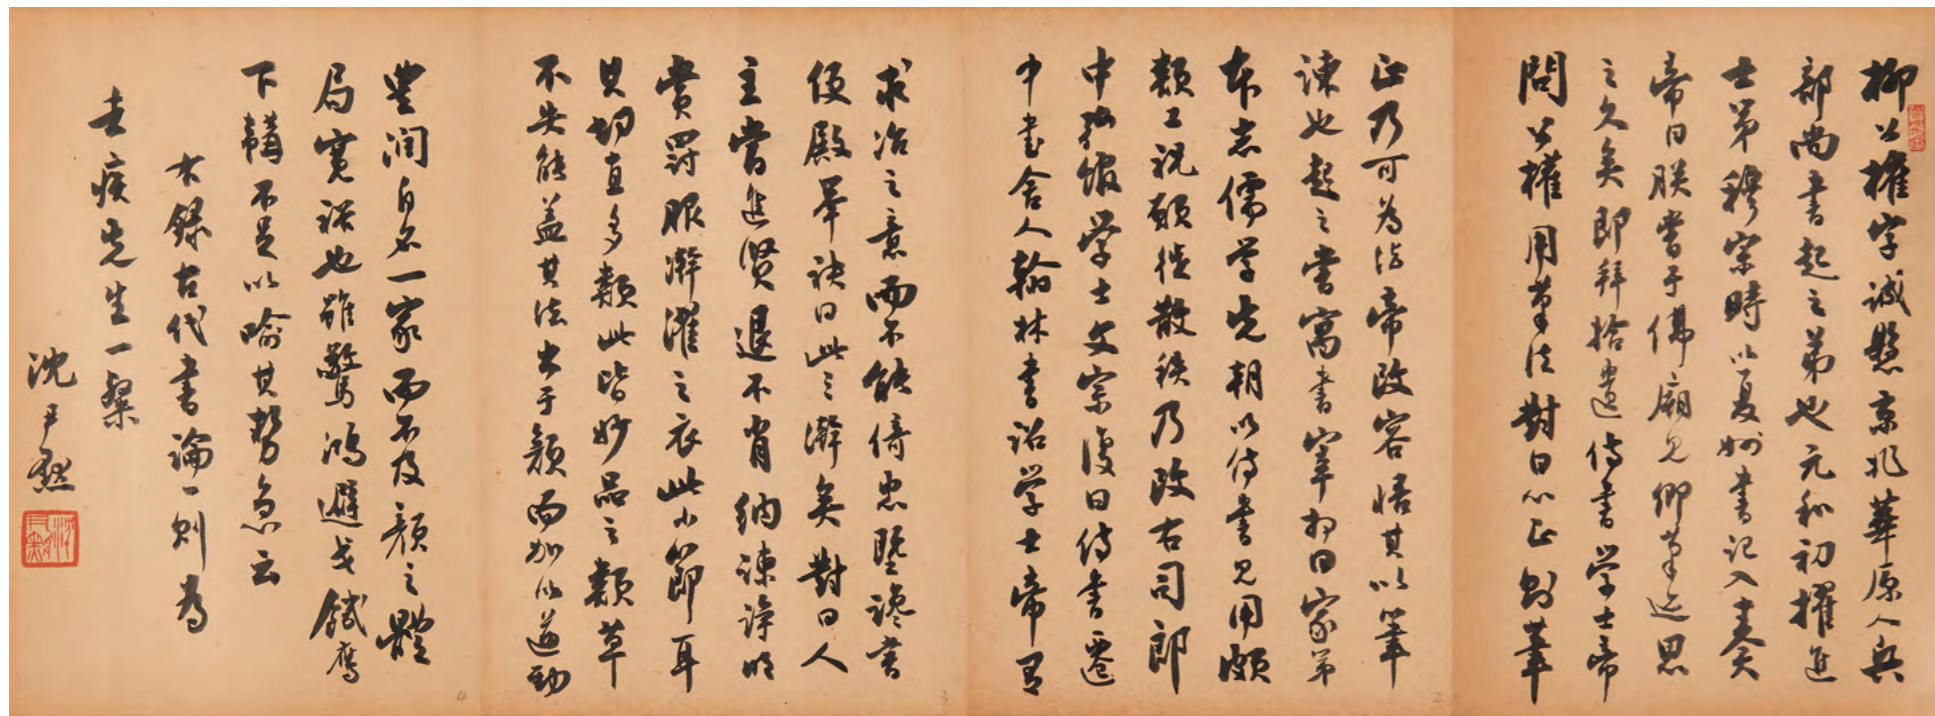 柳公權字誠懸京兆華原人兵
部尚書起之弟也元和初擢進
士第穆宗時以夏州書記入奏
帝曰朕嘗于佛廟見卿筆迹思
之久矣即拜拾遺侍書學士帝
問公權用筆法對曰心正則筆
正乃可為法帝改容悟其以筆
諫也起之嘗寓書宰相曰家弟
本志儒學先朝以侍書見用頗
類工祝願徙散秩乃改右司郎
中弘馆学士文宗復召侍書遷
中書舍人翰林書诏学士帝
求治之意而不能倚忠臣讒害
便殿舉袂曰此三澣矣對曰人
主當進賢退不肖納諫諍明
賞罰服澣濯之衣此小節耳
其切直多類此皆妙品之類草
不失能蓋其法出于顏而加以遒勁
豐潤自名一家而不及顏之體
局寬裕也雖驚鴻避弋饑鷹
下鞲不足以喻其勢急云
右錄古代書論一則為
去疾先生一粲
沈尹默